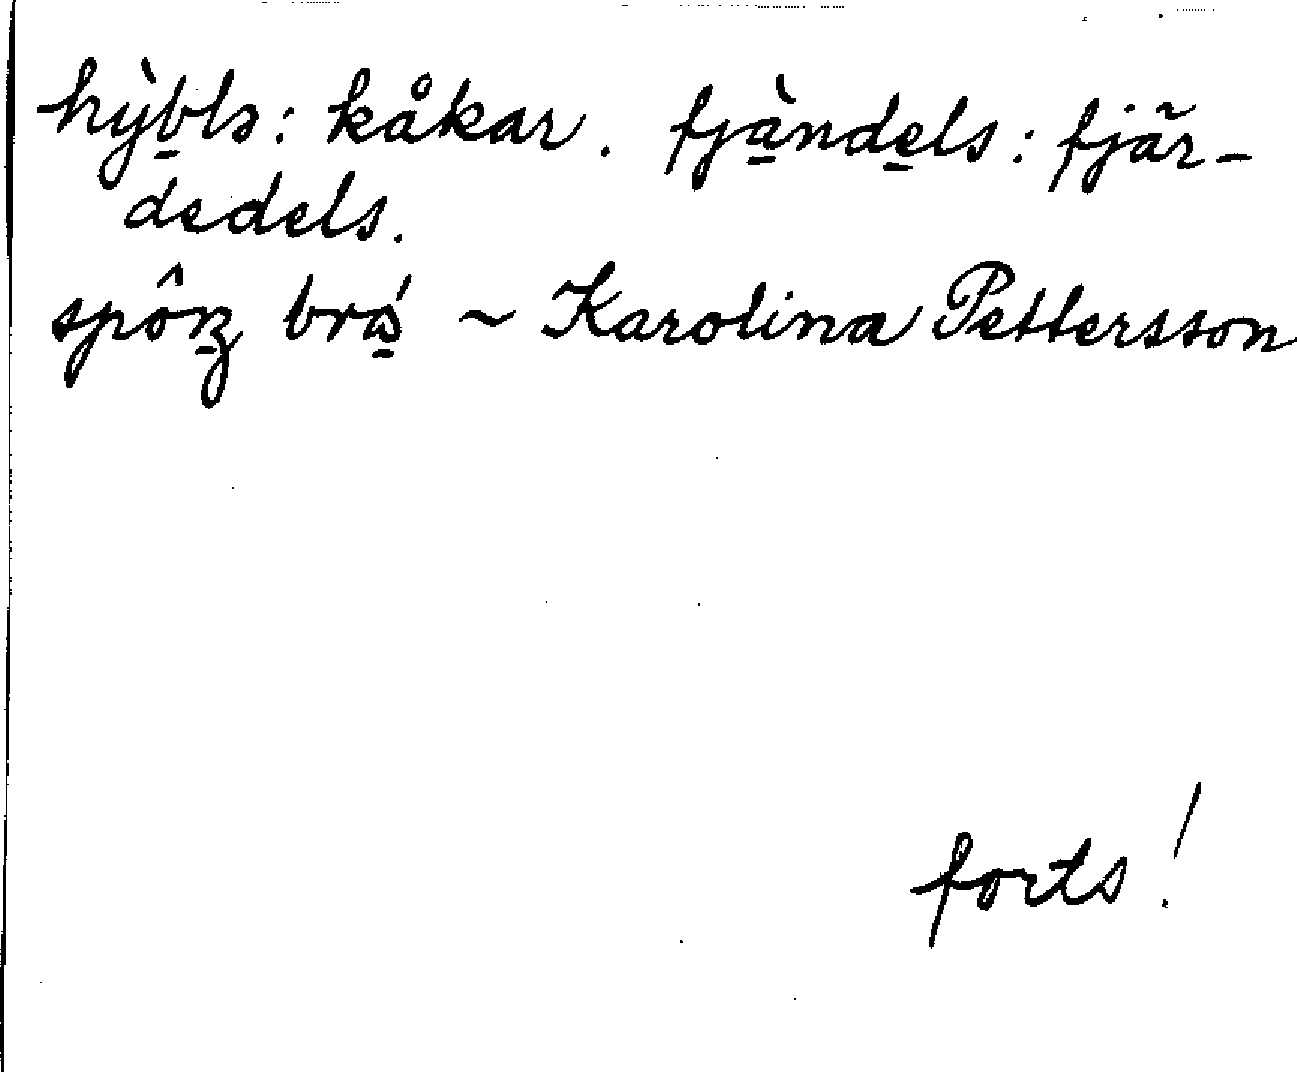 hỳb̲ls: kåkar. fjà̲nde̲ls: fjär-
dedels.
spôn̲z brá̲ ~ Karolina Pettersson
forts!